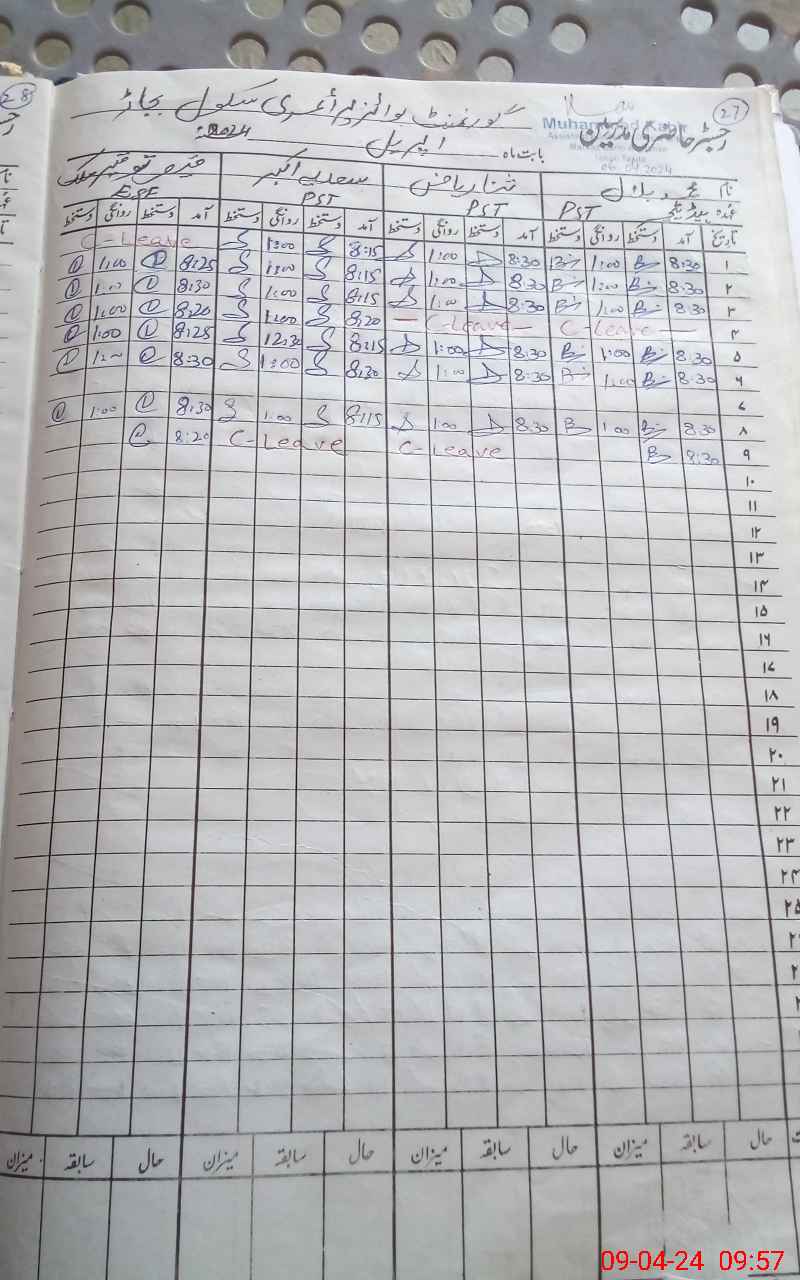 28
27
رجسٹر حاضری مدرسین گورنمنٹ بوائز پرائمری سکول بجاڑ
Muhammad
06-04-2024
بابت ماہ اپریل 2024ء
نام محمد بلال ثنا ریاض سعدیہ اکبر
عہدہ PST PST PST ESE
تاریخ آمد دستخط روانگی دستخط آمد دستخط روانگی دستخط آمد دستخط روانگی دستخط آمد دستخط روانگی دستخط
۱ 8:30 1:00 8:30 1:00 8:15 1:00 C-Leave
۲ 8:30 1:00 8:30 1:00 8:15 1:00 8:25 1:00
۳ 8:30 1:00 8:30 1:00 8:15 1:00 8:30 1:00
۴ C-Leave C-Leave 8:20 1:00 8:20 1:00
۵ 8:30 1:00 8:30 1:00 8:15 12:30 8:25 1:00
۶ 8:30 1:00 8:30 1:00 8:30 1:00 8:30 1:00
۷
۸ 8:30 1:00 8:30 1:00 8:15 1:00 8:30 1:00
۹ 8:30 C-Leave C-Leave 8:20
۱۰
۱۱
۱۲
۱۳
۱۴
۱۵
۱۶
۱۷
۱۸
۱۹
۲۰
۲۱
۲۲
۲۳
۲۴
۲۵
حال سابقہ میزان حال سابقہ میزان حال سابقہ میزان حال سابقہ میزان
09-04-24 09:57